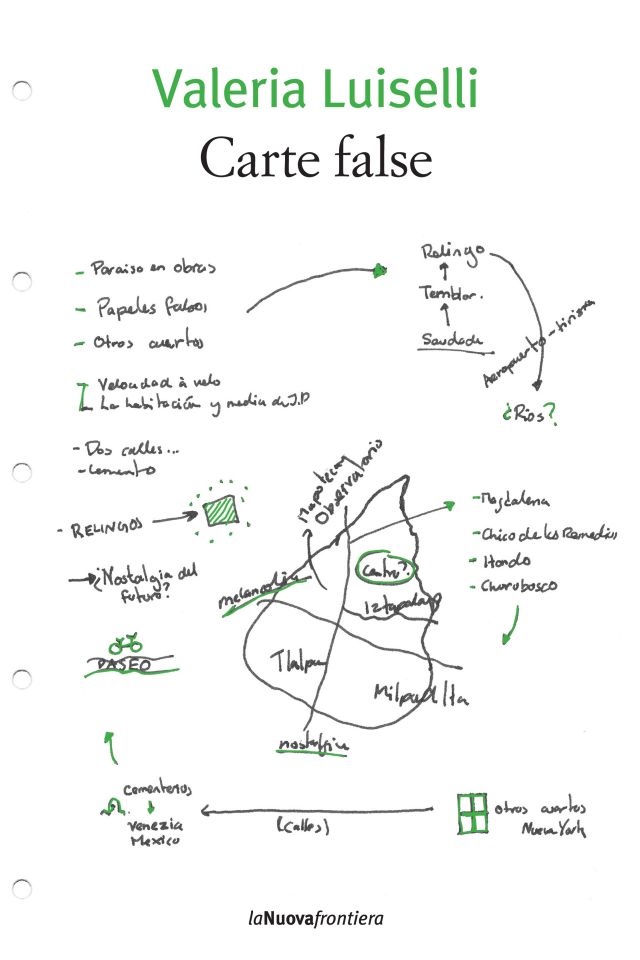 Valeria Luiselli
Carte false
- Paraiso en obras
- Papeles falsos
- Otros cuartos
Velocidad à velo
La habitación y media de J.B
- Dos calles...
- Cemento
- RELINGOS
¿Nostalgia del
futuro?
PASEO
Relingo
Temblor.
Saudade
Aeropuerto -
¿Ríos?
Mapoteca y
Observatorio
melancolia
Centro?
Iztapalapa
Tlalpan
Milpa Alta
nostalgia
- Magdalena
- Chico de los Remedios
- Hondo
- Churubusco
cementerios
Venezia
Mexico
(calles)
otros cuartos
Nueva York
laNuovafrontiera